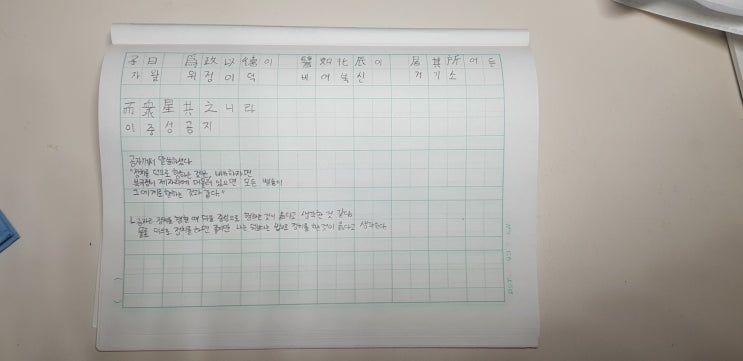 子曰 爲政以德이 譬如北辰이 居其所어든
자왈 위정이덕 비여북신 거기소
而衆星共之니라
이중성공지
공자께서 말씀하셨다
"정치를 덕으로 행하는 것은, 비유하자면
북극성이 제자리에 머물러 있으면 모든 별들이
그에게로 향하는 것과 같다."
공자는 정치를 행할 때 덕을 중심으로 행하는 것이 옳다고 생각한 것 같다.
물론 덕으로 정치를 하면 좋지만 나는 법으로 정치를 하는 것이 옳다고 생각한다